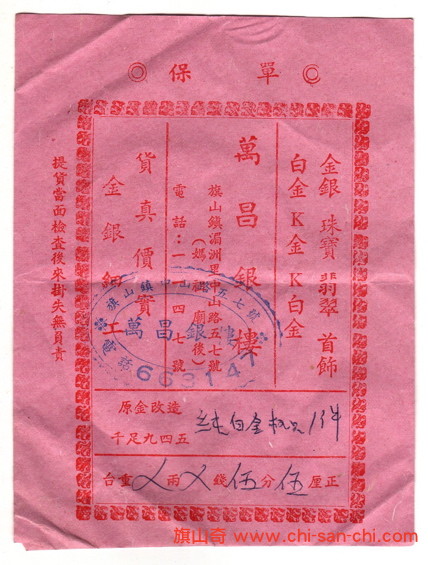 ◎保單◎
金銀 珠寶 翡翠 首飾
白金 K金 K白金
萬昌銀樓
旗山鎮湄洲里中山路五七號
(媽祖廟後)
電話：一一四七號
貨真價實
金銀細工
提貨當面檢查後來掛失無負責
旗山鎮中山路五七號
萬昌銀樓
電話
663147
原金改造
千足九四五
純白金 1件
台重ㄨ兩ㄨ錢伍分伍厘正
旗山奇 www.chi-san-chi.com